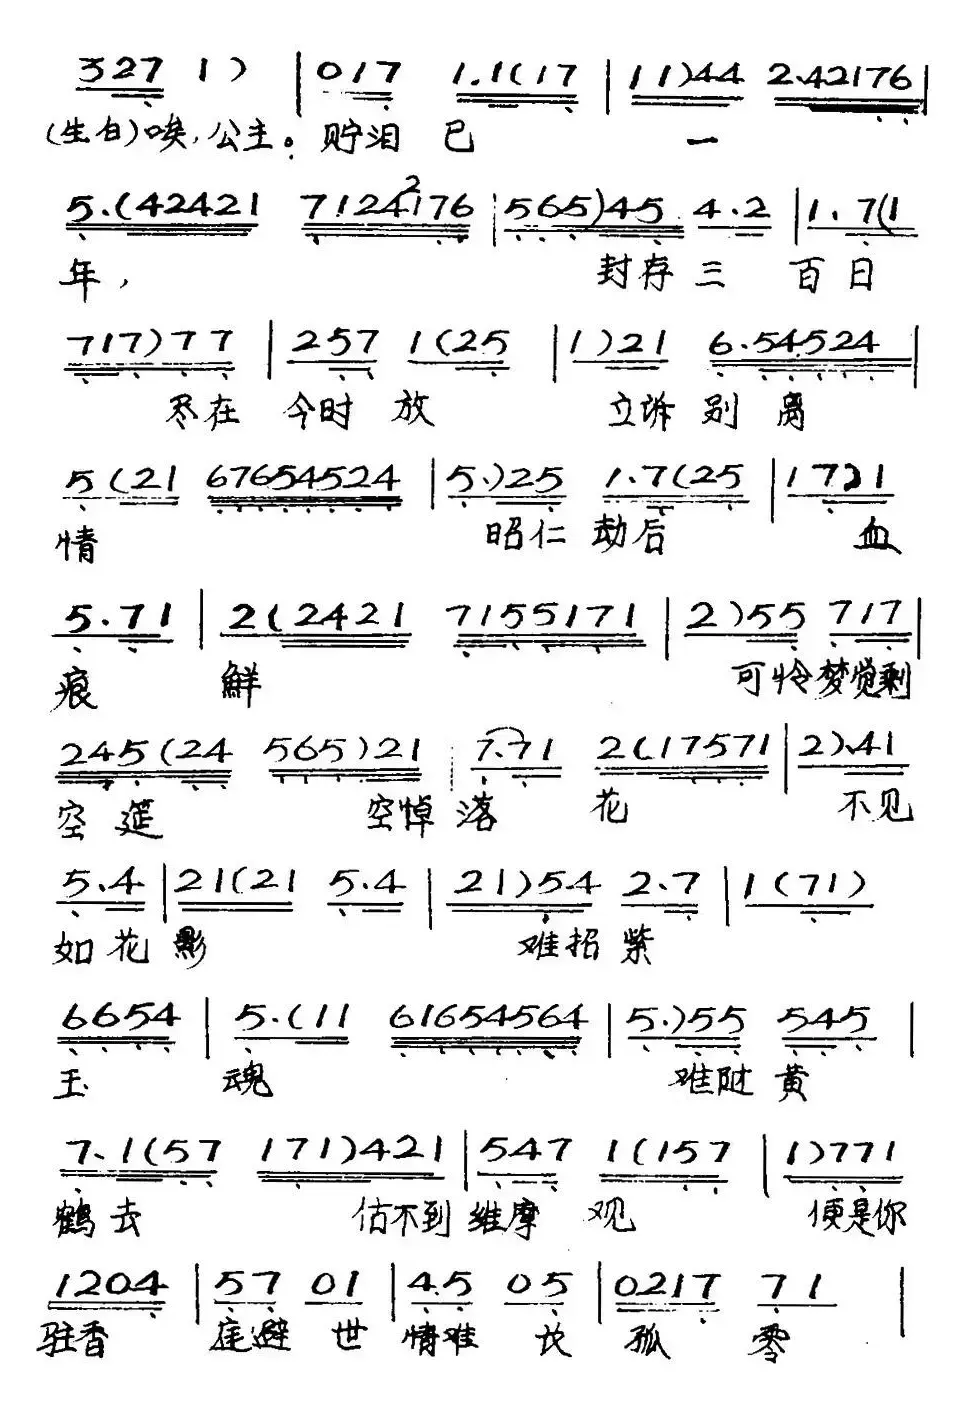 327 1) | 017 1.1(17 | 11)44 2.42176 |
(生白)唉,公主。贮泪 已 一
5.(42421 7124²176 | 565)45 4.2 | 1.7(1
年, 封存三 百日
717)77 | 257 1(25 | 1)21 6.54524 |
尽在 今时 放 立诉 别 离
5(21 67654524 | 5.)25 1.7(25 | 1721
情 昭仁 劫后 血
5.71 | 2(2421 7155171 | 2)55 717 |
痕 鲜 可怜梦觉剩
245(24 565)21 | 7.71 2(17571 | 2).41
空筵 空悼 落 花 不见
5.4 | 21(21 5.4 | 21)54 2.7 | 1(71)
如花 影 难招 紫
6654 | 5.(11 61654564 | 5.)55 545 |
玉 魂 难随 黄
7.1(57 171)421 | 547 1(157 | 1)771
鹤去 估不到 维摩 观 便是你
1204 | 57 01 | 4.5 05 | 0217 71 |
驻香 庭避 世 情难 孤 零